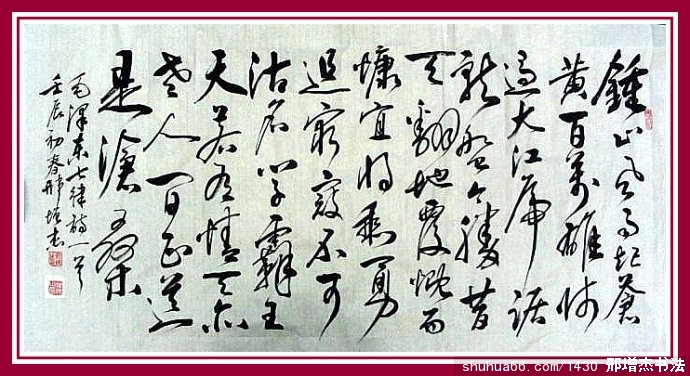 鍾山风雨起蒼
黄百萬雄师
過大江虎踞
龍盤今勝昔
天翻地覆慨而
慷宜将剩勇
追窮寇不可
沽名学霸王
天若有情天亦
老人间正道
是滄桑
毛澤東七律詩一首
壬辰初春邢增杰
shuhua66.com/1430 邢增杰书法